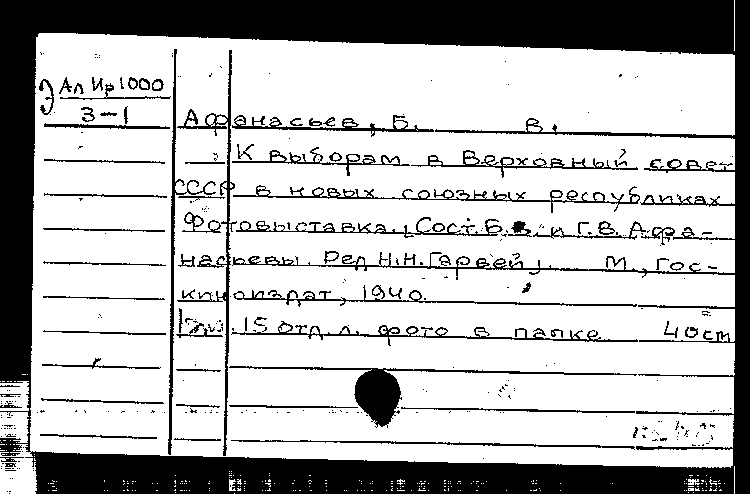 Э Ал Ир 1000
3-1
Афанасьев, Б. В.
К выборам в Верховный совет
СССР в новых союзных республиках
Фотовыставка. [Сост. Б.В. и Г.В. Афа-
насьевы. Ред Н.Н. Гарвей]. М., Гос-
киноиздат, 1940.
15 отд. л. фото в папке 40 см